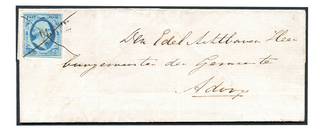 Den Edel Achtbaren Heer
burgemeester der Gemeente
Adorp